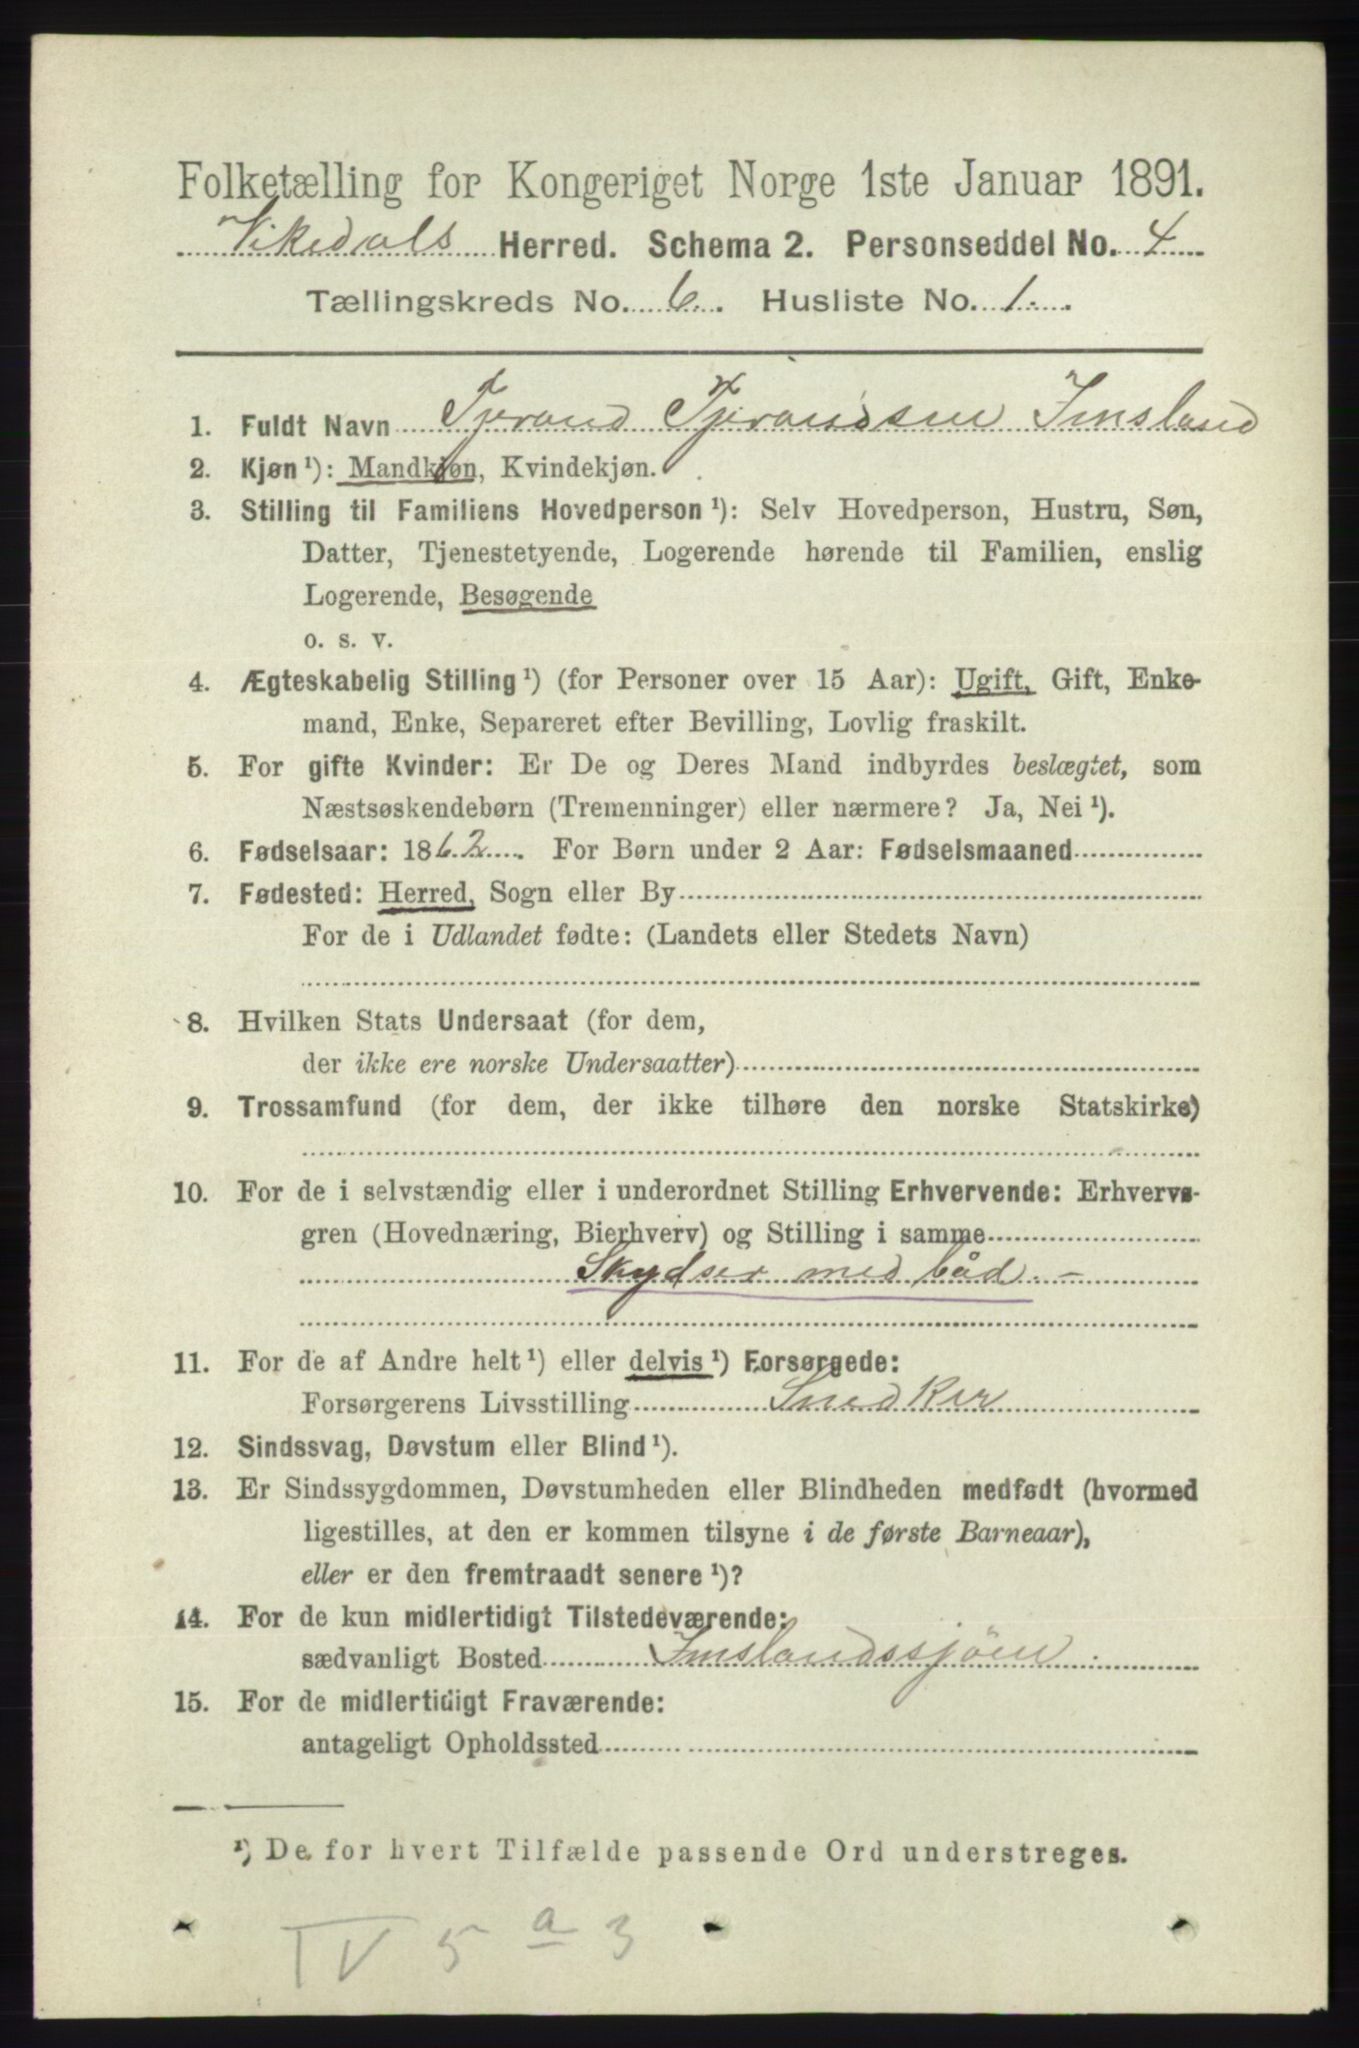 Folketælling for Kongeriget Norge 1ste Januar 1891.
Vikedals Herred. Schema 2. Personseddel No. 4
Tællingskreds No. 6. Husliste No. 1.
1. Fuldt Navn Tjerand Tjerandsen Imsland
2. Kjøn ¹): Mandkjøn, Kvindekjøn.
3. Stilling til Familiens Hovedperson ¹): Selv Hovedperson, Hustru, Søn,
Datter, Tjenestetyende, Logerende hørende til Familien, enslig
Logerende, Besøgende
o. s. v.
4. Ægteskabelig Stilling ¹) (for Personer over 15 Aar): Ugift, Gift, Enke-
mand, Enke, Separeret efter Bevilling, Lovlig fraskilt.
5. For gifte Kvinder: Er De og Deres Mand indbyrdes beslægtet, som
Næstsøskendebørn (Tremenninger) eller nærmere? Ja, Nei ¹).
6. Fødselsaar: 1862. For Børn under 2 Aar: Fødselsmaaned
7. Fødested: Herred, Sogn eller By
For de i Udlandet fødte: (Landets eller Stedets Navn)
8. Hvilken Stats Undersaat (for dem,
der ikke ere norske Undersaatter)
9. Trossamfund (for dem, der ikke tilhøre den norske Statskirke)
10. For de i selvstændig eller i underordnet Stilling Erhvervende: Erhvervs-
gren (Hovednæring, Bierhverv) og Stilling i samme
Skydser med båd. -
11. For de af Andre helt ¹) eller delvis ¹) Forsørgede:
Forsørgerens Livsstilling Snedker
12. Sindssvag, Døvstum eller Blind ¹).
13. Er Sindssygdommen, Døvstumheden eller Blindheden medfødt (hvormed
ligestilles, at den er kommen tilsyne i de første Barneaar),
eller er den fremtraadt senere ¹)?
14. For de kun midlertidigt Tilstedeværende:
sædvanligt Bosted Imslandssjøen.
15. For de midlertidigt Fraværende:
antageligt Opholdssted
¹) De for hvert Tilfælde passende Ord understreges.
IV 5 a 3